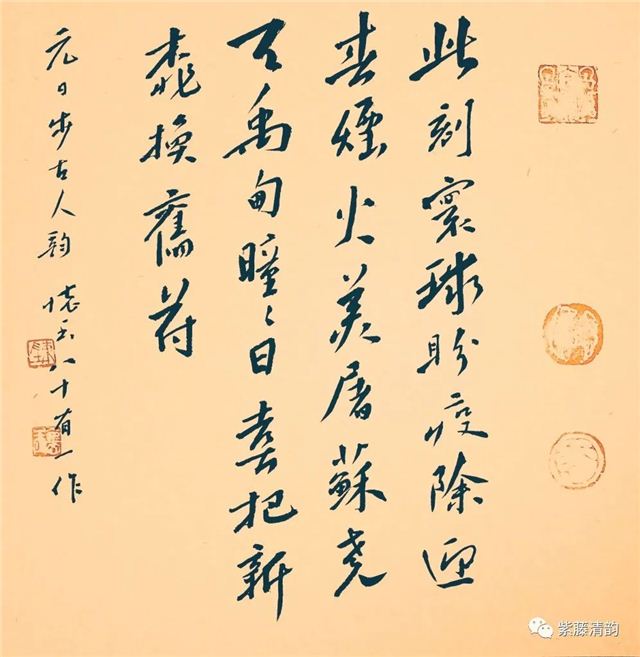 此刻寰球盼疫除迎
春煙火美屠蘇堯
天禹甸曈〻日喜把新
桃換舊符
元日步古人韵 懷玉八十有一作
紫藤清韵